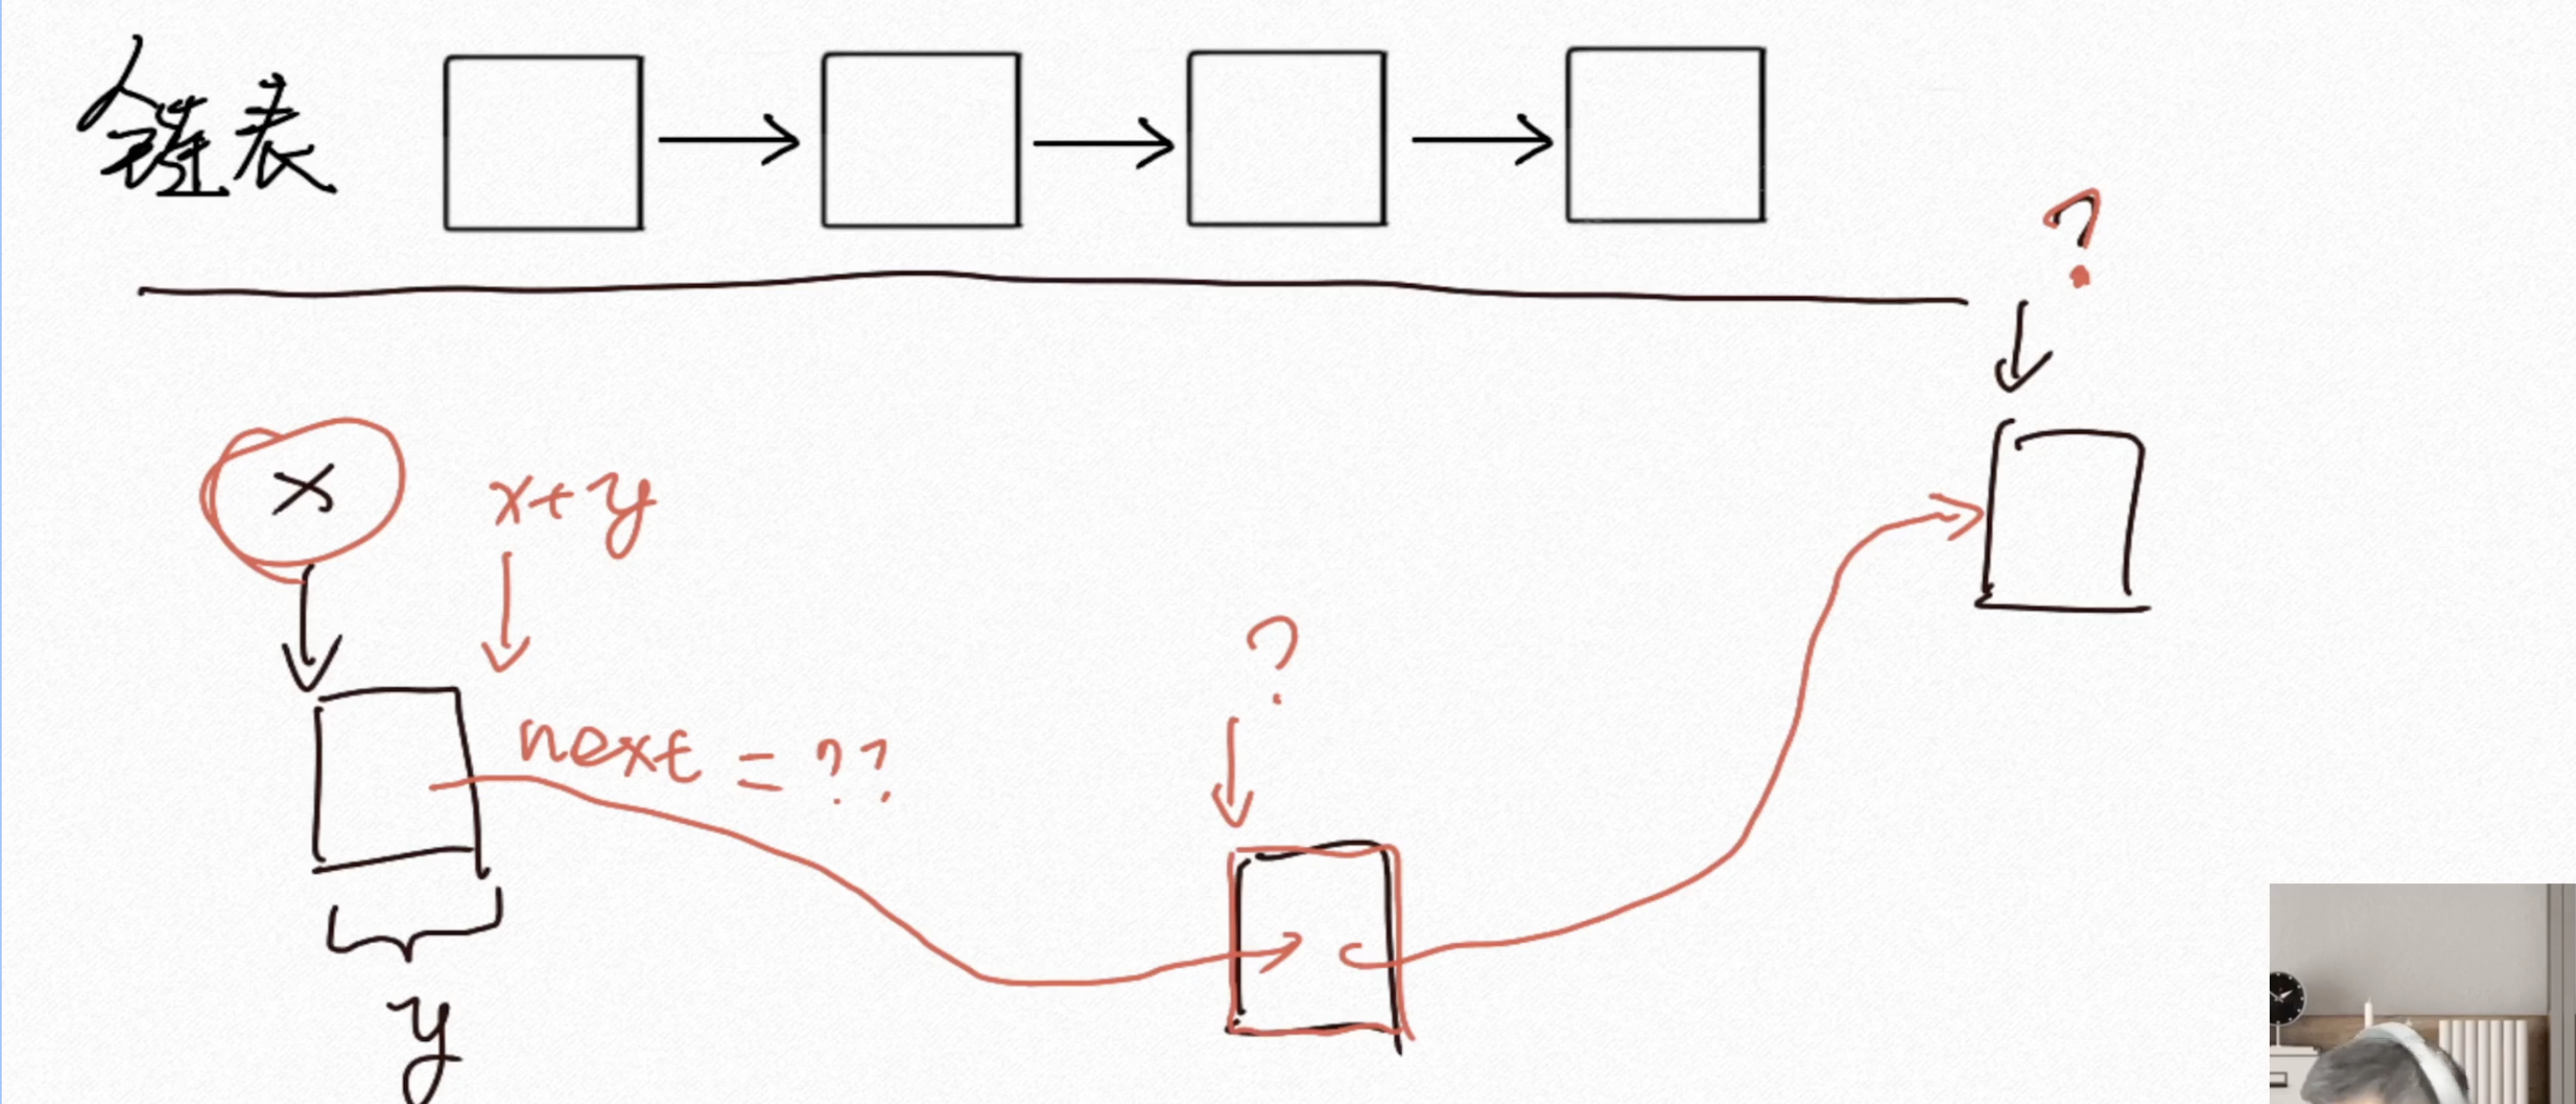 链表
?
x
x+y
?
next = ??
y